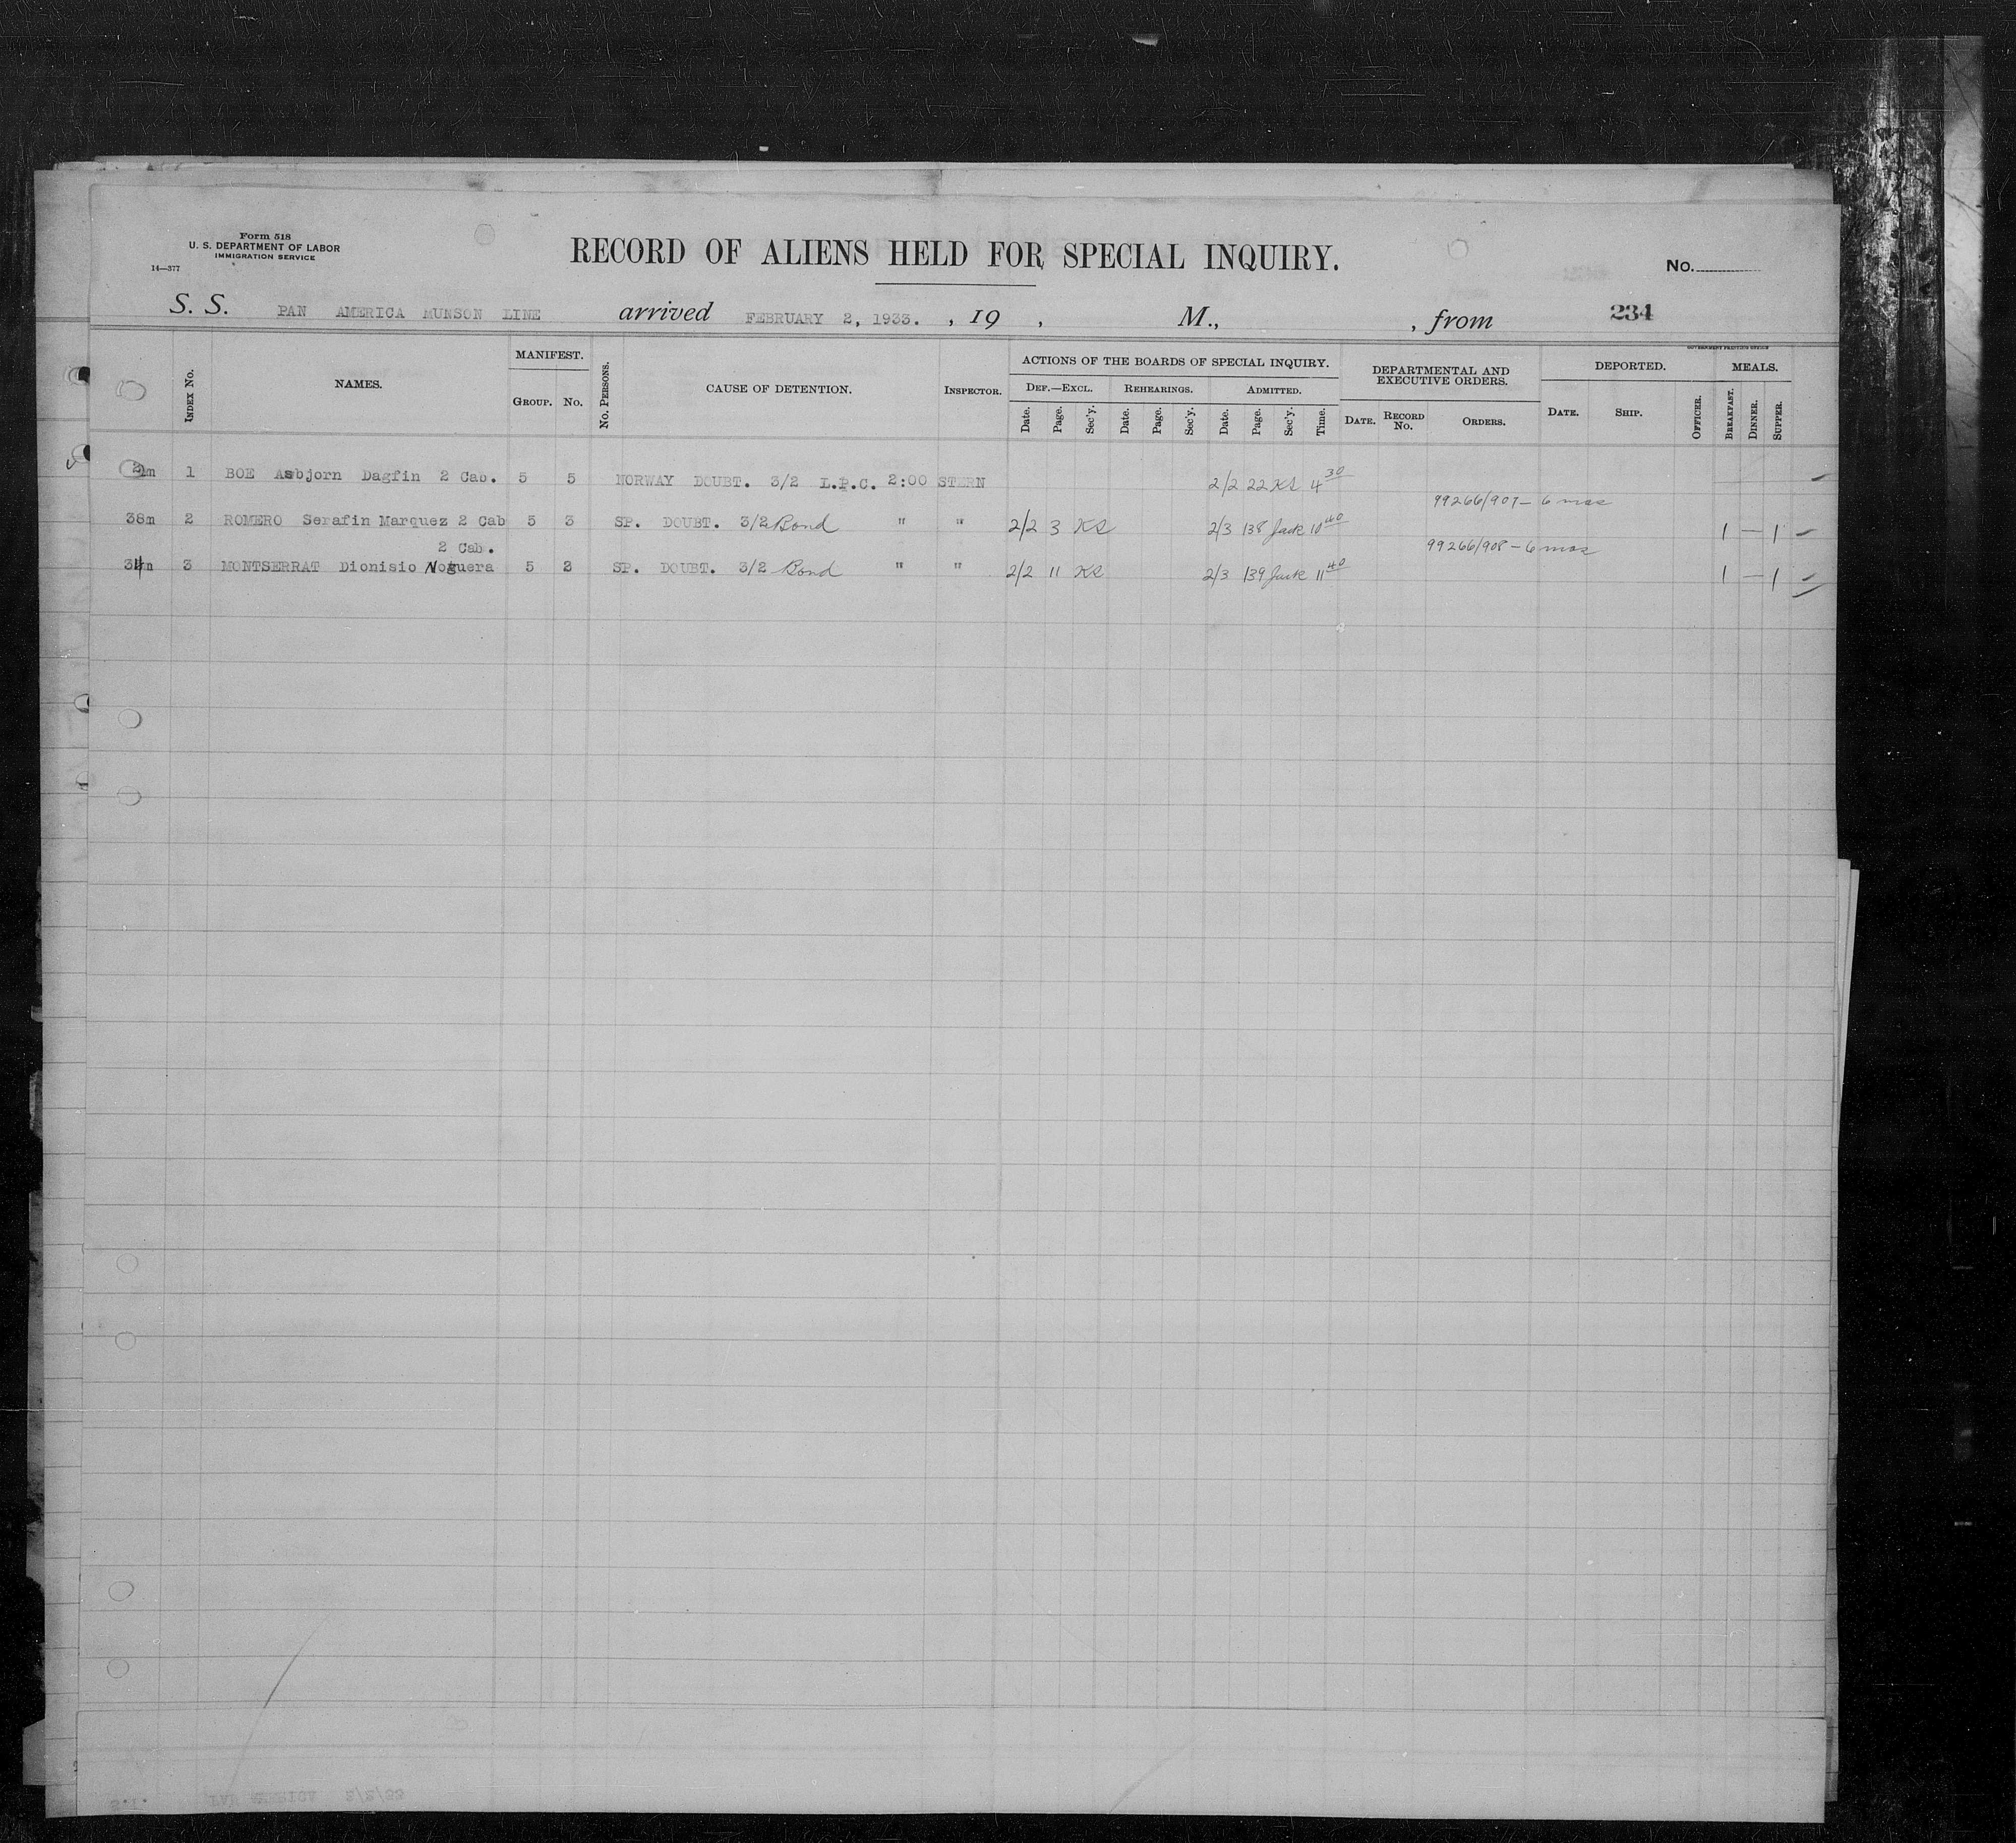 Form 518
U. S. DEPARTMENT OF LABOR
IMMIGRATION SERVICE
14—377
RECORD OF ALIENS HELD FOR SPECIAL INQUIRY.
No.
S. S. PAN AMERICA MUNSON LINE arrived FEBRUARY 2, 1933. , 19 , M., , from 234
GOVERNMENT PRINTING OFFICE
INDEX No. NAMES. MANIFEST. GROUP. No. No. PERSONS. CAUSE OF DETENTION. INSPECTOR. ACTIONS OF THE BOARDS OF SPECIAL INQUIRY. DEPARTMENTAL AND EXECUTIVE ORDERS. DEPORTED. MEALS.
DEF.—EXCL. REHEARINGS. ADMITTED.
Date. Page. Sec'y. Date. Page. Sec'y. Date. Page. Sec'y. Time. DATE. RECORD No. ORDERS. DATE. SHIP. OFFICER. BREAKFAST. DINNER. SUPPER.
1 BOE Asbjorn Dagfin 2 Cab. 5 5 NORWAY DOUBT. 3/2 L.P.C. 2:00 STERN 2/2 22 KS 4 30
99266/907 - 6 mos
38m 2 ROMERO Serafin Marquez 2 Cab 5 3 SP. DOUBT. 3/2 Bond " " 2/2 3 KS 2/3 138 Jack 10 40 1 — 1
2 Cab. 99266/908 - 6 mos
34m 3 MONTSERRAT Dionisio Noguera 5 2 SP. DOUBT. 3/2 Bond " " 2/2 11 KS 2/3 139 Jack 11 40 1 — 1